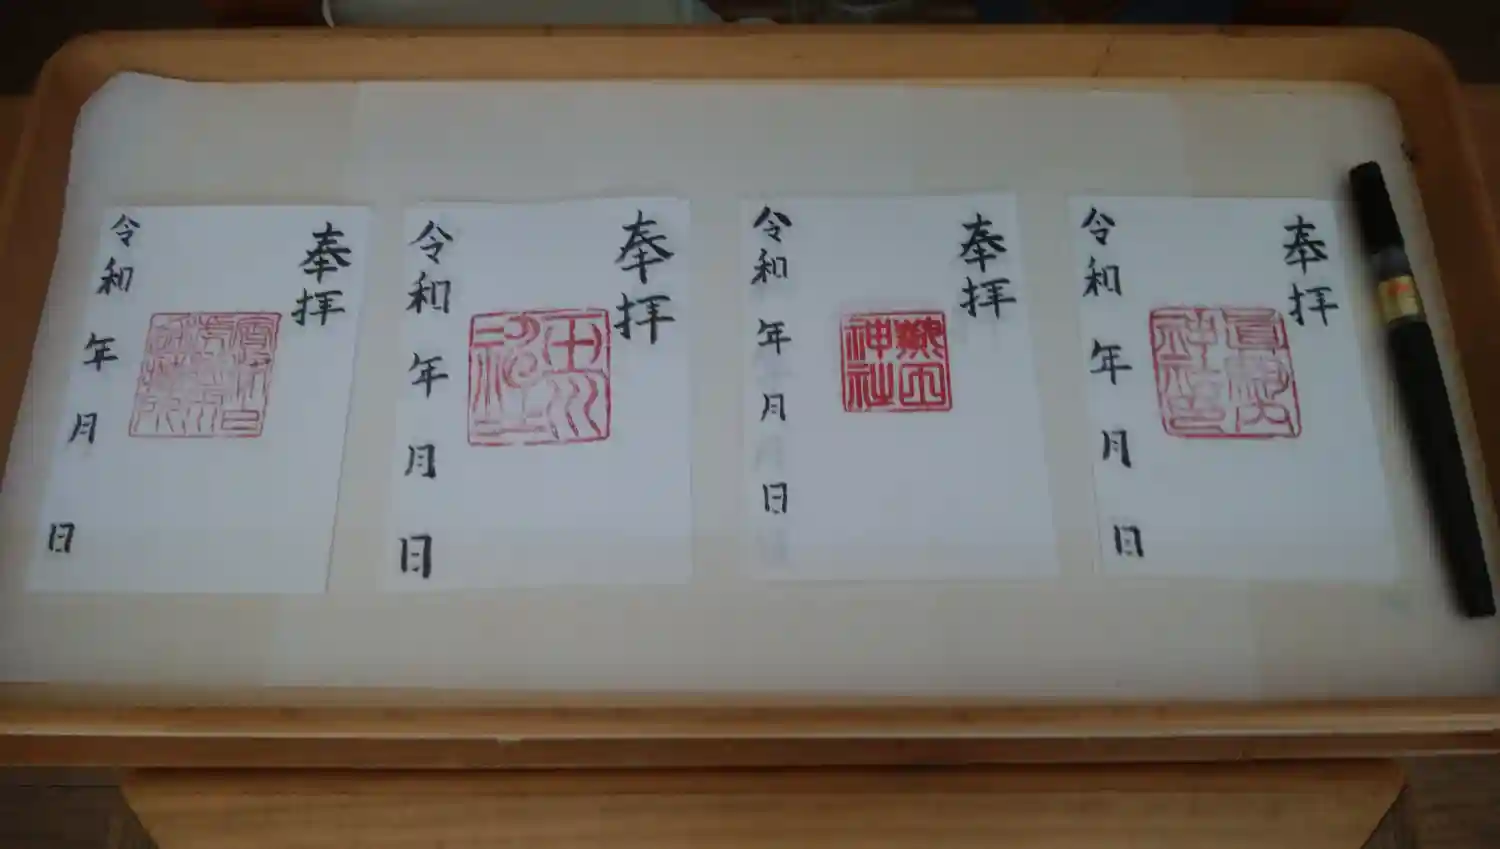 奉拝
令和 年 月 日
奉拝
田川
神社
令和 年 月 日
奉拝
神社
令和 年 月 日
奉拝
令和 年 月 日